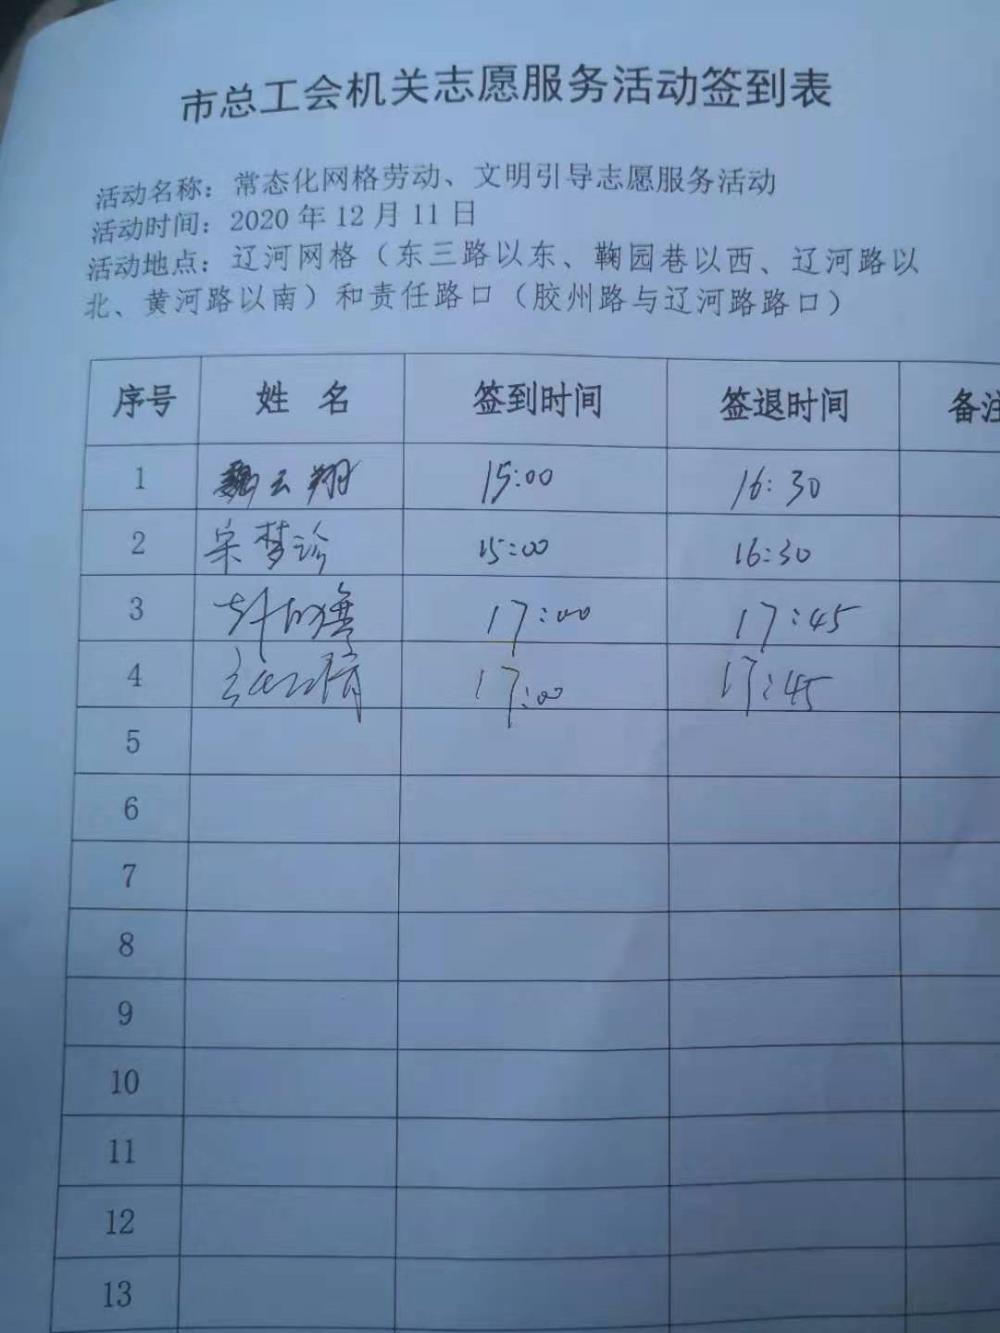 市总工会机关志愿服务活动签到表
活动名称：常态化网格劳动、文明引导志愿服务活动
活动时间：2020 年 12 月 11 日
活动地点：辽河网格（东三路以东、鞠园巷以西、辽河路以
北、黄河路以南）和责任路口（胶州路与辽河路路口）
序号 姓 名 签到时间 签退时间 备注
1 魏云翔 15:00 16:30
2 宋梦诊 15:00 16:30
3 17:00 17:45
4 17:00 17:45
5
6
7
8
9
10
11
12
13